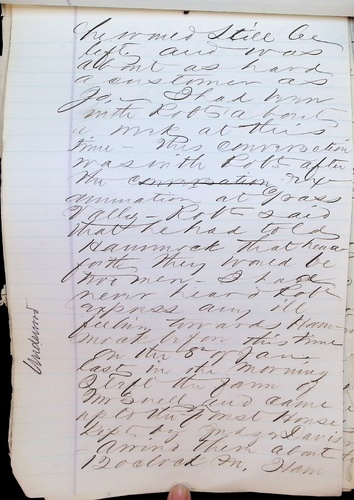 he would still be
left and was
about as hard
a customer as
Jo. I had been
with Robt about
a week at this
time - This conversation
was with Robt after
the conversation Ex
amination at Grass
Valley - Robt said
that he had told
Hammock that hence
forth they would be
two men - I had
never heard Robt
express any ill
feeling towards Ham
mock before this time
On the 5th of Jany
last in the morning
I left the farm of
Mr Snell and came
up to the Forest House
kept by Davis
Arrived there about
12 oclock M. Ham
Underwood